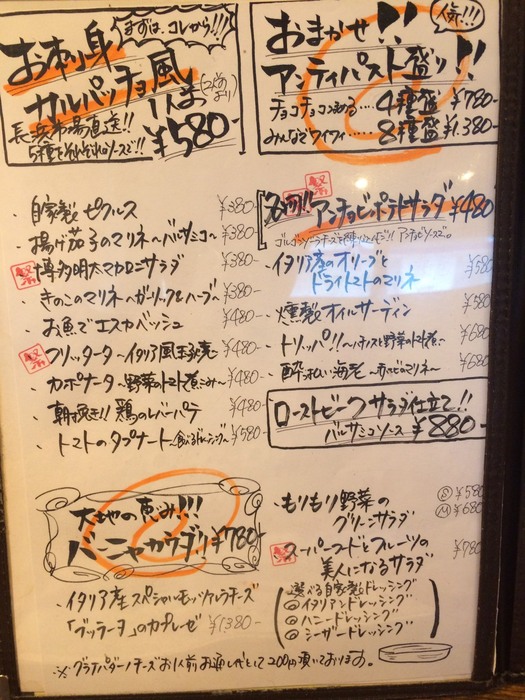 まずは、コレから!!!
お刺し身
カルパッチョ風
1人前
(2人前より)
長浜市場直送!!
5種それぞれのソースで!!
¥580-
人気!!!
おまかせ!!
アンティパスト盛り!!
チョコチョコつめる… 4種盛 ¥780-
みんなでワイワイ… 8種盛 ¥1.380-
・自家製ピクルス ¥380-
・揚げ茄子のマリネ〜バルサミコ〜 ¥380-
博多明太マカロニサラダ ¥380-
・きのこのマリネ〜ガーリック&ハーブ〜 ¥380-
・お魚でエスカベッシュ ¥480-
フリッタータ〜イタリア風玉子焼〜 ¥480-
・カポナータ〜野菜のトマト煮込み〜 ¥480-
・朝挽き!!鶏のレバーパテ ¥480-
・トマトのタプナート〜食べるドレッシング〜 ¥580-
名物!! アンチョビポテトサラダ ¥480
イタリア産のオリーブと
ドライトマトのマリネ ¥580
・燻製オイルサーディン ¥580
・トリッパ!!〜ハチノスと野菜のトマト煮〜 ¥680
・酔っ払い海老 ¥680
ローストビーフサラダ仕立て!!
バルサミコソース ¥880-
大地の恵み!!!
バーニャカウダ!! ¥780-
・イタリア産スペシャルモッツァレラチーズ
「ブッラータ」のカプレーゼ ¥1380-
・もりもり野菜の
グリーンサラダ
Ⓢ ¥580
Ⓜ ¥680
・スーパーフードとフルーツの
美人になるサラダ ¥780
選べる自家製ドレッシング
◎イタリアンドレッシング
◎ハニードレッシング
◎シーザードレッシング
※グラナパダーノチーズお1人前お通し代として200円頂いております。